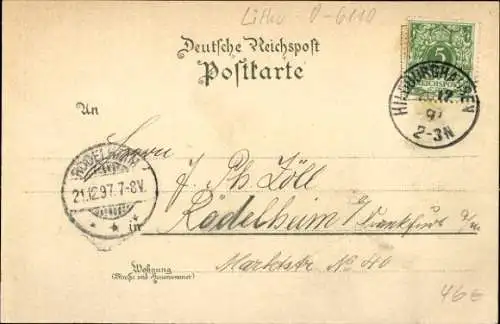 Litho D-6110
Deutsche Reichspost
Postkarte
5
REICHSPOST
HILDBURGHAUSEN
12.
97
2-3N
An
Herrn
RÖDELHEIM
21.12.97.7-8V.
* *
J. Ph. Zöll
in Rödelheim b/ Frankfurt a/m
Wohnung
(Straße und Hausnummer)
Marktstr. No 40
46e